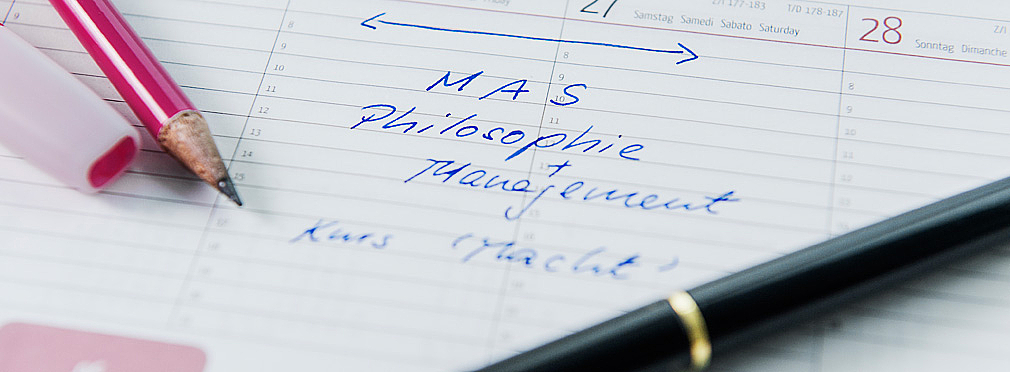 27 Z/I 177-183 T/D 178-187
Samstag Samedi Sabato Saturday
28 Z/I
Sonntag Dimanche
9
8
9
10
11
12
13
14
15
8
9
10
11
8
9
10
11
12
MAS
Philosophie
+
Management
Kurs 'Macht'